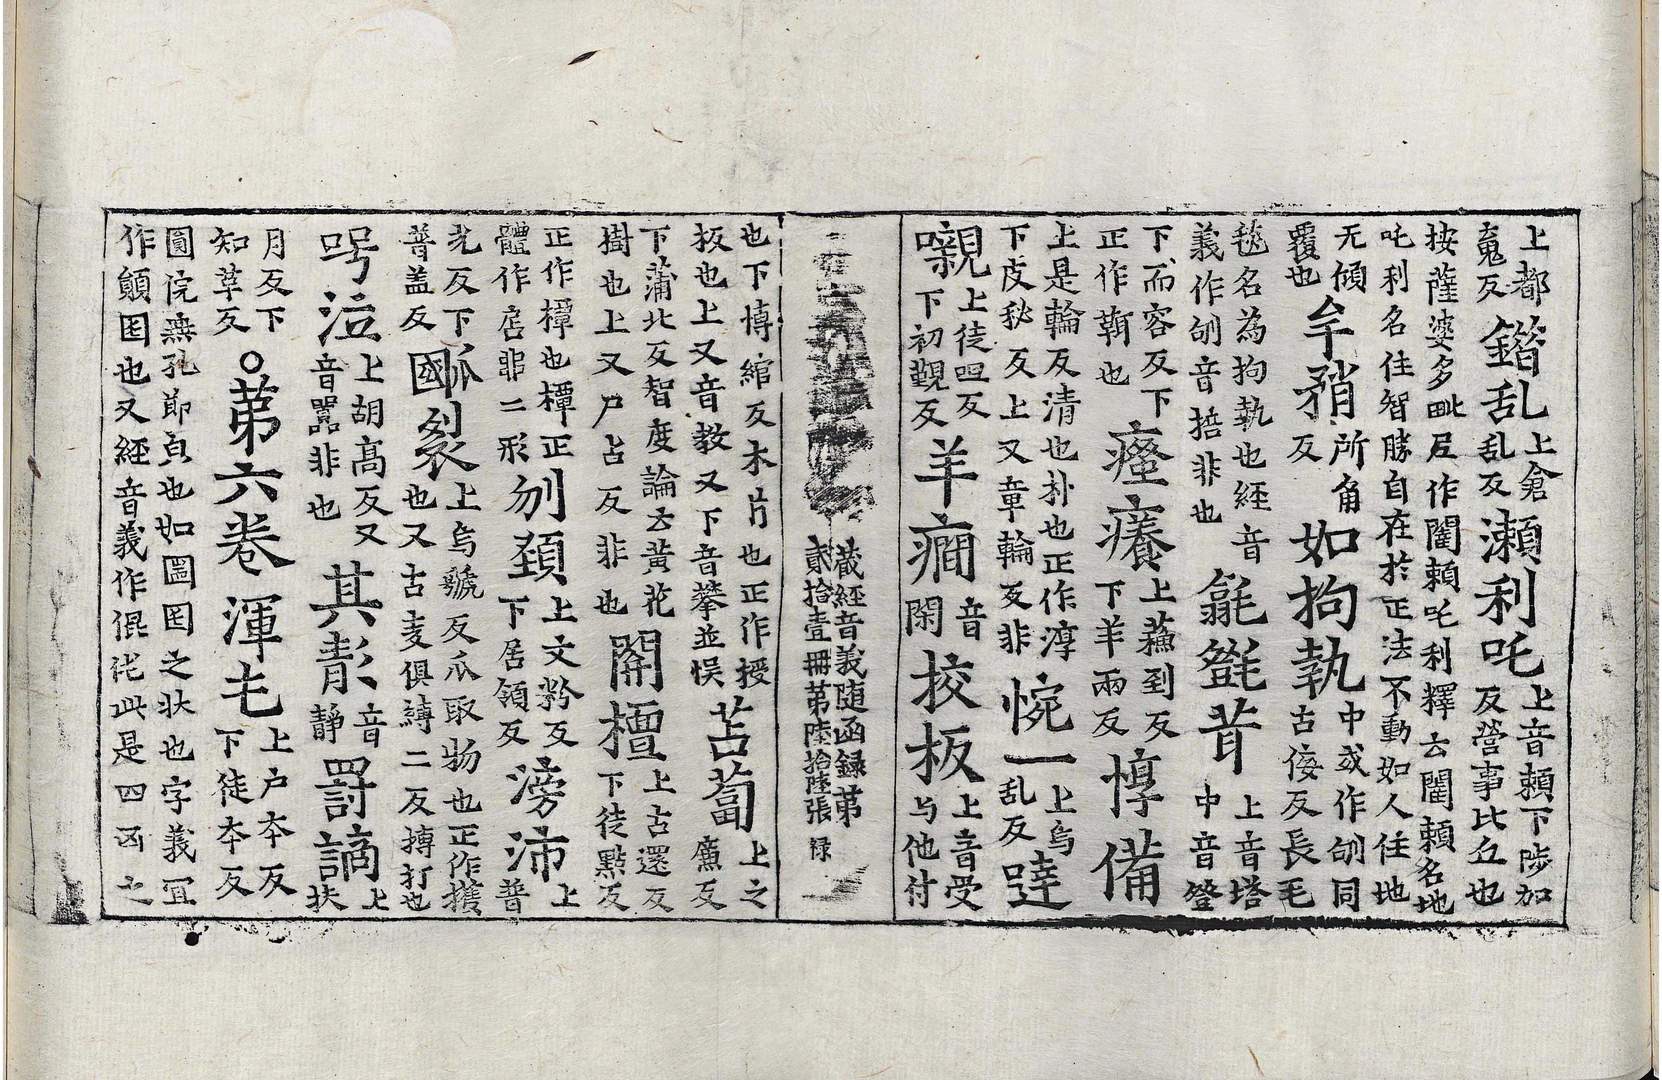 上都
嵬反
鐕乱
上倉
乱反
瀨利吒
上音賴下陟加
反營事比丘也
按薩婆多毗𡰱作闍賴吒利釋云闍賴名地
吒利名住智勝自在於正法不動如人住地
无傾
覆也
牟矟
所角
反
如拘執
中或作㓣同
古侯反長毛
毯名為拘執也經音
義作㓣音掐非也
氀毿昔
上音塔
中音登
下而容反下
正作鞘也
瘙癢
上蘓到反
下羊兩反
惇備
上是輪反清也朴也正作淳
下皮秘反上又章輪反非
惋一
上烏
乱反
噠嚫
上徒怛反
下初覲反
羊癇
音
閑
挍板
上音受
与他付
藏經音義随函録第
貳拾壹冊第陸拾陸張 禄
也下博綰反木片也正作授
板也上又音教又下音攀並悞
苫蔔
上之
廉反
下蒲北反智度論云黄花
樹也上又尸占反非也
開橝
上古還反
下徒點反
正作橝也橝正
體作扂非二形
刎頚
上文粉反
下居領反
滂沛
上
普
光反下
普盖反
㧓裂
上烏虢反爪取物也正作擭
也又古麦俱縛二反搏打也
國
咢泣
上胡高反又
音嚚非也
其彭
音
靜
罰謫
上
扶
月反下
知草反
○第六卷
渾乇
上户本反
下徒本反
圓俒無孔節皃也如圖囤之状也字義冝
作顛囤也又經音義作倱伅此是四凶之